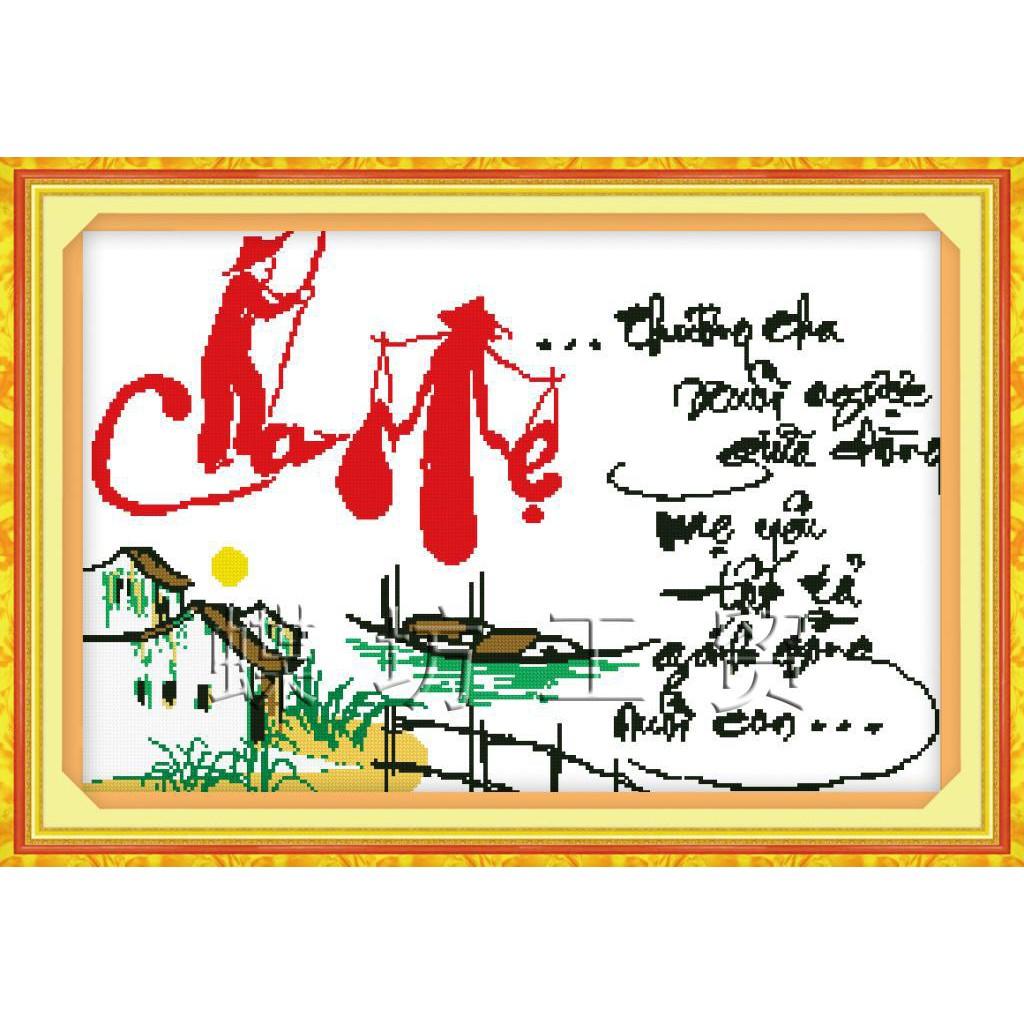 Cha Mẹ
... thương cha
xuôi ngược
giữa dòng
mẹ yêu
tả
gánh gồng
nuôi con ...
蝶坊工贸